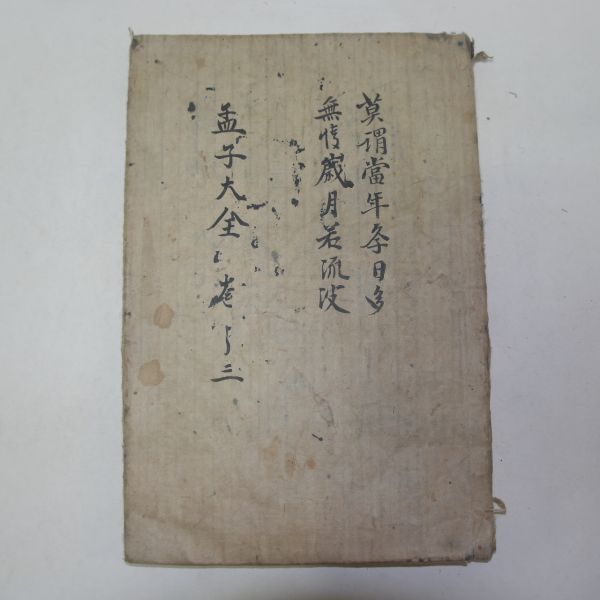 莫谓當年冬日多
無情歲月若流波
孟子大全 卷之三